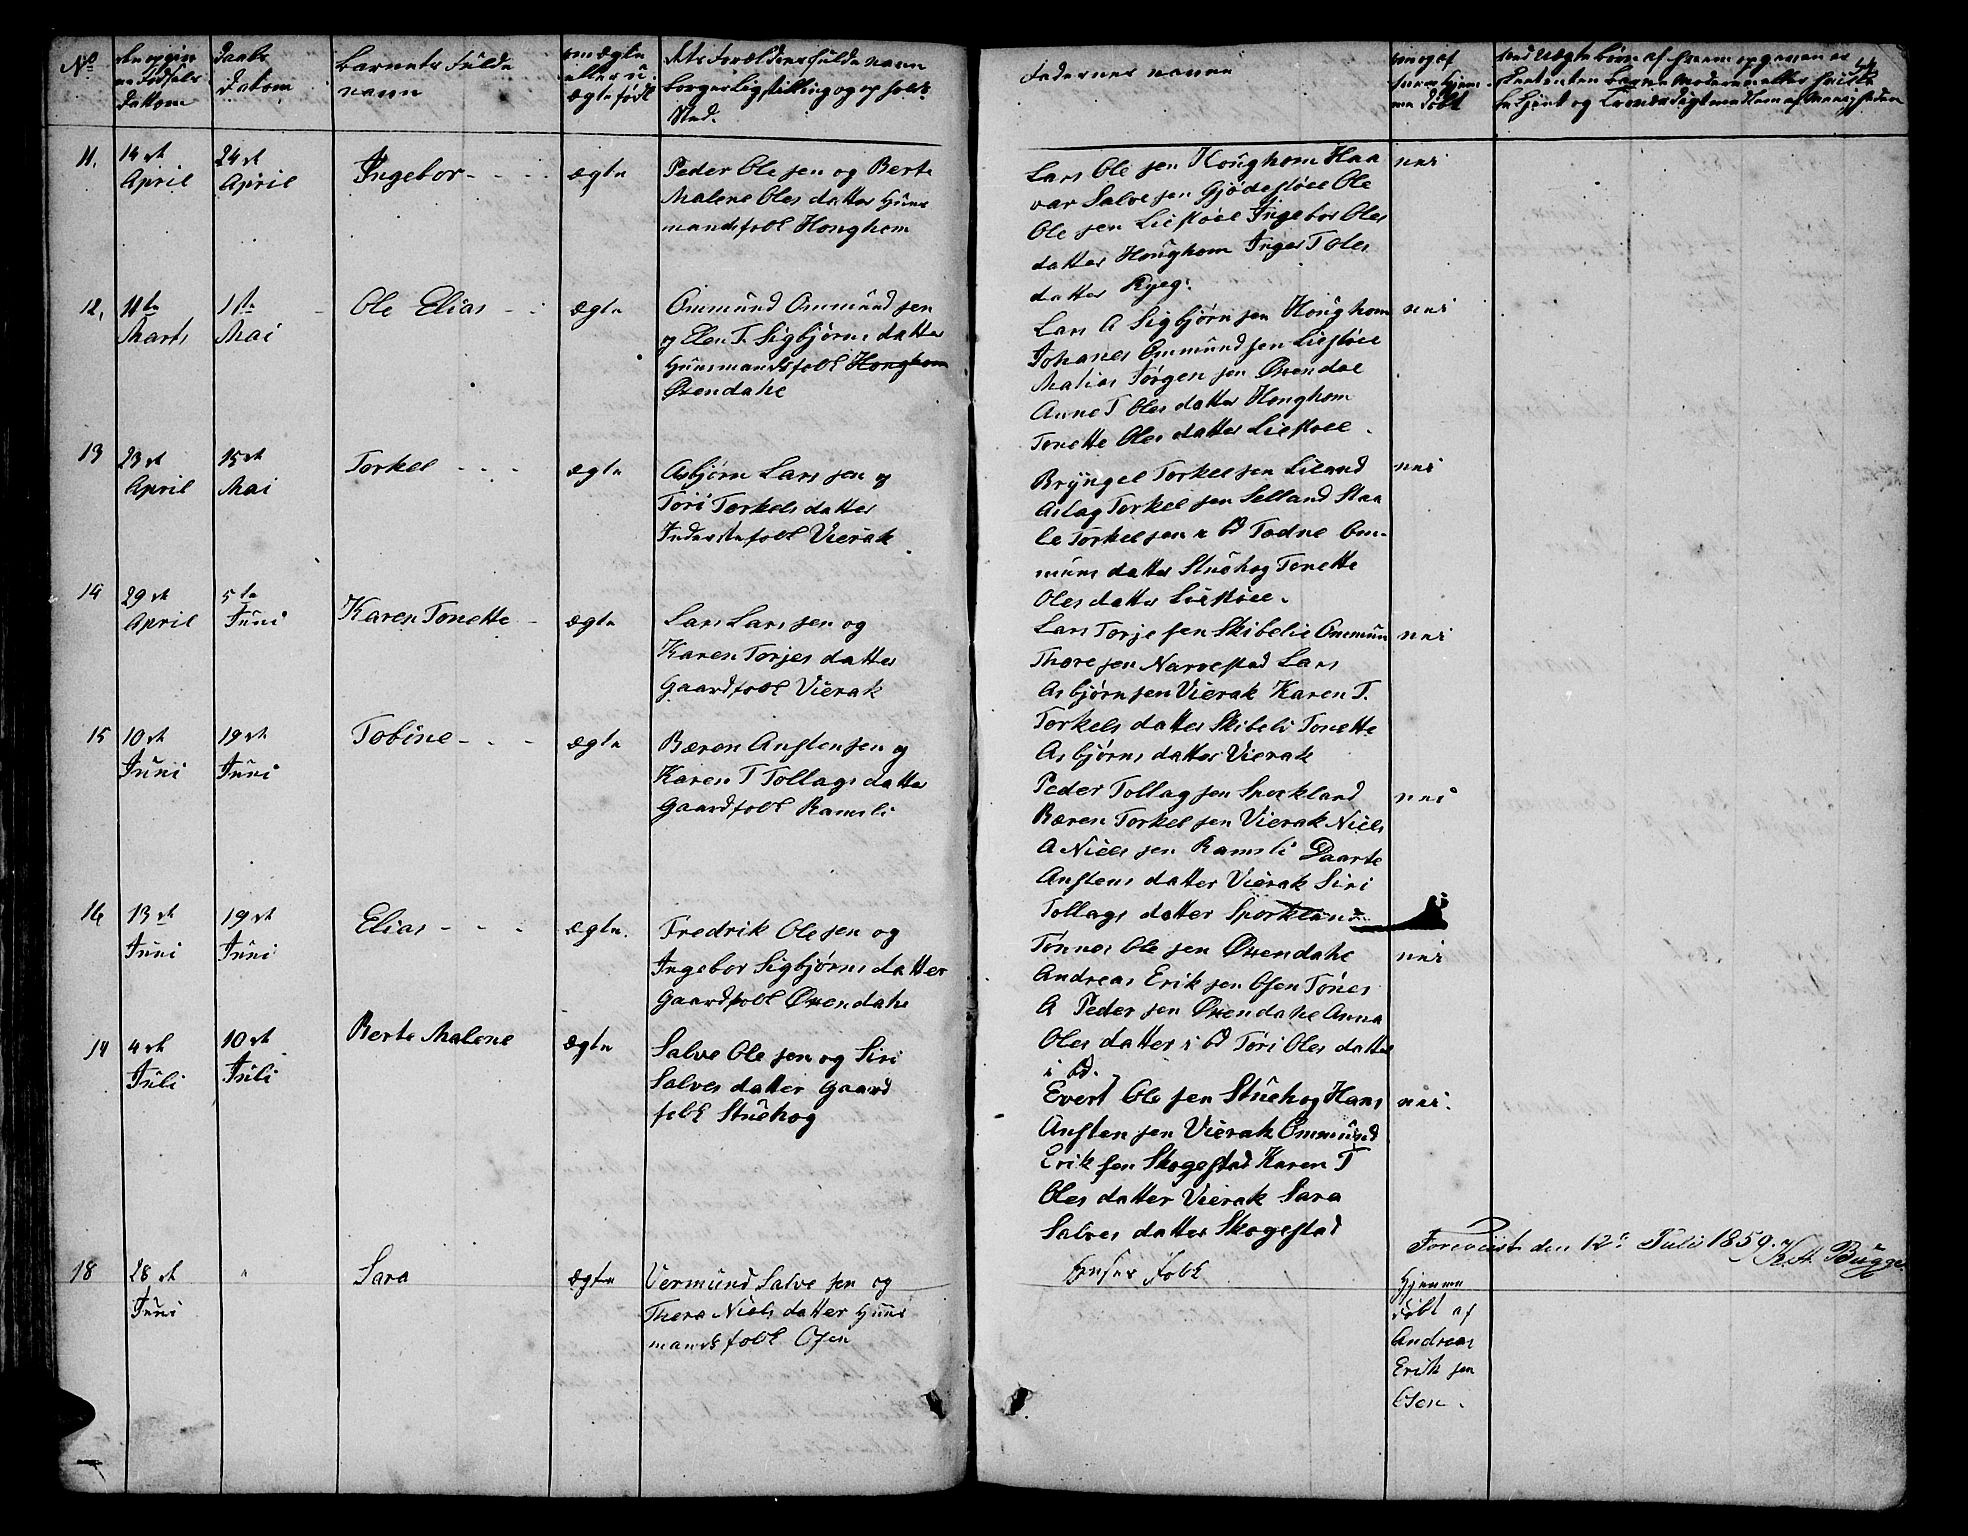 No
Daabs
Datom
Barnets Fulde
navn
Faderens navne
11.
14de
April
24de
April
Ingebor
ægte
Peder Ole sen og Berte
Malene Oles datter Huus
mandsfolk Honghom
Lars Ole sen Honghom Haa
var Salve sen Gjødestølee Ole
Ole sen Liestøel Ingebor Oles
datter Honghom Inger T Oles
datter Ryeg.
nei
12.
11te
Marts
1ste
Mai
Ole Elias
ægte
Ommund Ommund sen
og Elen T. Sigbjørns datter
Huusmandsfolk Honghom
Øxendahe
Lars A Sigbjørn sen Honghom
Johanes Ommund sen Liestøel
Matias Jørgen sen Øxendal
Anne T Oles datter Honghom
Tonette Oles datter Liestøel.
nei
13
23de
April
15de
Mai
Torkel
ægte
Asbjørn Lars sen og
Tori Torkels datter
Inderstefolk Vierak
Bryngel Torkel sen Lieland
Aslag Torkel sen Selland Staa
le Torkel sen i bd Todne Om-
muns datter Stuehog Tonette
Oles datter Liestøel.
nei
14
29de
April
5te
Juni
Karen Tonette
ægte
Lars Lars sen og
Karen Torjes datter
Gaardfolk Vierak
Lars Torje sen Skibelie Ommun
Thore sen Narvestad Lars
Asbjørn sen Vierak Karen T.
Torkels datter Skibeli Tonette
Asbjørns datter Vierak
nei
15
10de
Juni
19de
Juni
Tobine
ægte
Bæren Ansten sen og
Karen T Tollags datter
Gaardfolk Ramsli
Peder Tollag sen Sporkland
Bæren Torkel sen Vierak Niels
A Niels sen Ramsli Daarte
Anstens datter Vierak Siri
Tollags datter Sporkland
nei
16
13de
Juni
19de
Juni
Elias
ægte.
Fredrik Ole sen og
Ingebor Sigbjørns datter
Gaardfolk Øxendahe
Tønnes Ole sen Øxendahe
Andreas Erik sen Osen Tønes
A Peder sen Øxendahe Anna
Oles datter i bd Tori Oles datter
i bd.
nei
17
4de
Juli
10de
Juli
Berte Malene
ægte
Salve Ole sen og Siri
Salves datter Gaard
folk Stuehog
Evert Ole sen Stuehog Hans
Ansten sen Vierak Ommund
Erik sen Skogestad Karen T
Oles datter Vierak Sara
Salves datter Skogestad
nei.
Foreviist den 12te Juli 1859.
Bugge
18
28de
Juni
"
Sara
ægte
Vermund Salve sen og
Thora Niels datter Huus
mandsfolk Osen
Huser folk
Hjemme
døbt af
Andreas
Erik sen
Osen.